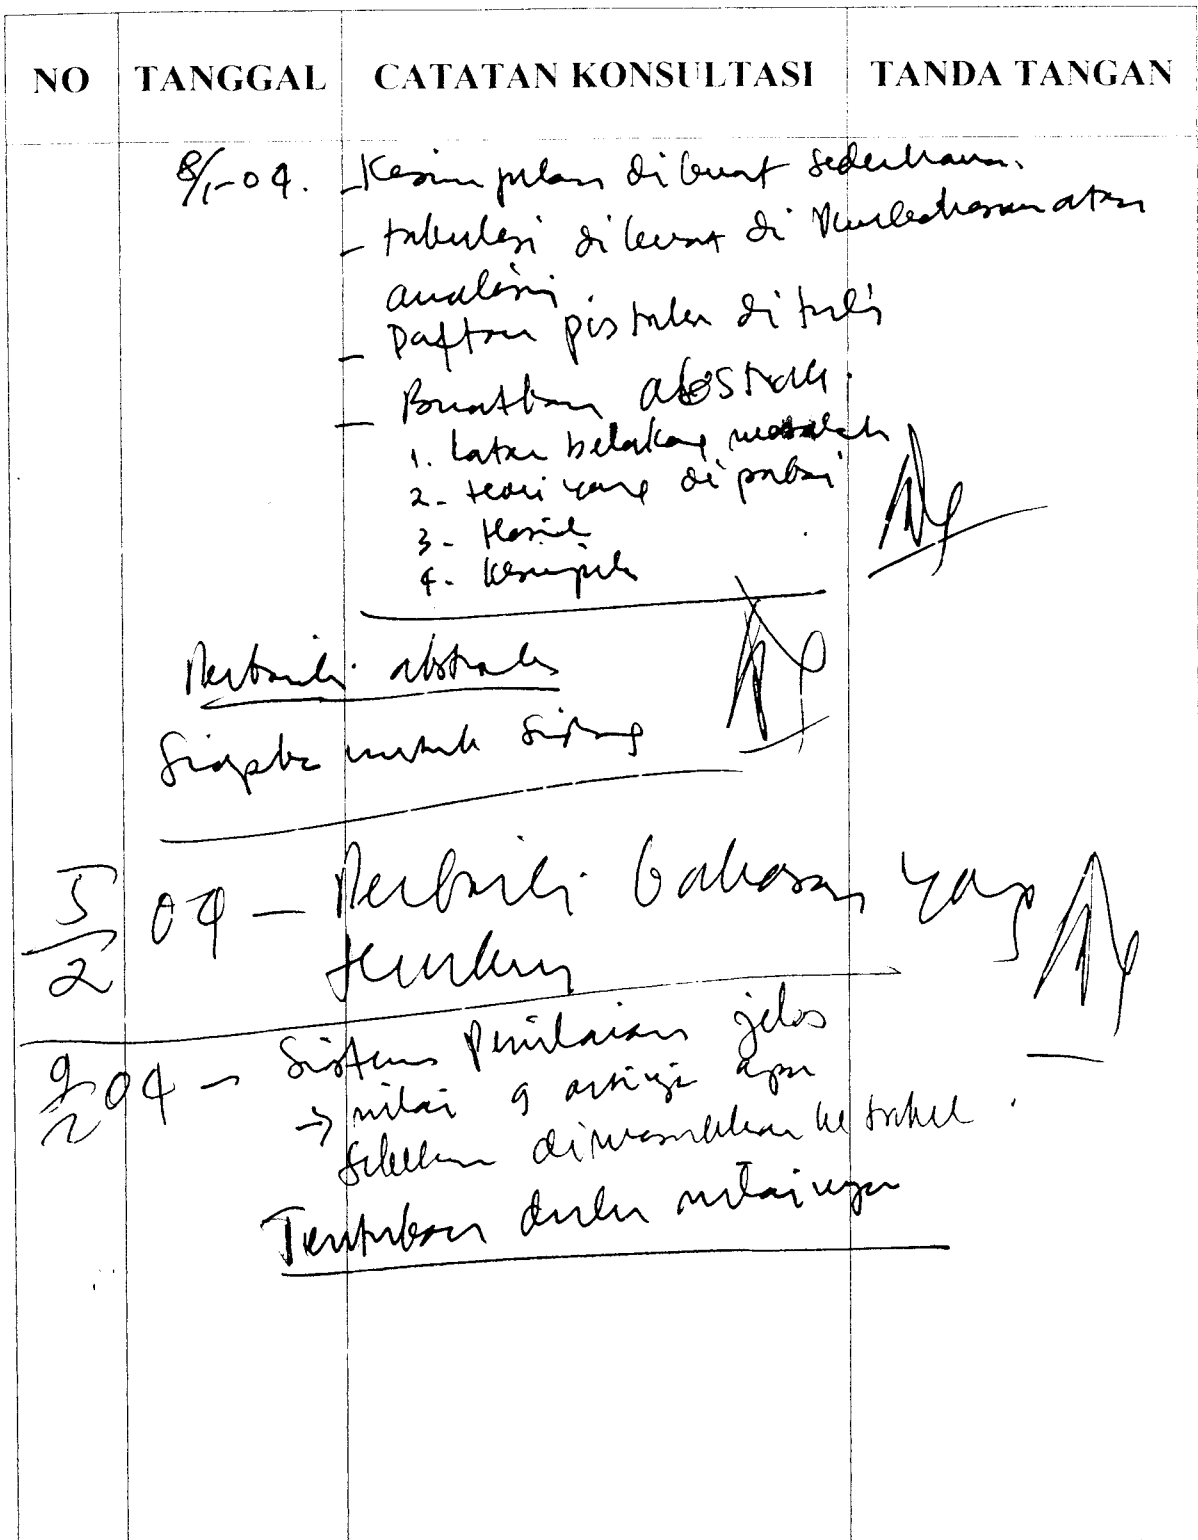 NO TANGGAL CATATAN KONSULTASI TANDA TANGAN
8/1-04. - Kesimpulan dibuat sederhana.
- tabulasi dibuat di Pembahasan atau
analisis.
- Daftar pustaka ditulis
- Buatkan abstrak.
1. Latar belakang masalah
2. teori yang dipakai
3. Hasil
4. Kesimpulan
Perbaiki abstrak
Siapkan untuk Sidang
5/2 04 - Perbaiki bahasan yang
9/2 04 - Sistem Penilaian jelas
→ nilai 9 artinya apa
sebelum dimasukkan ke tabel.
Tentukan dulu nilainya